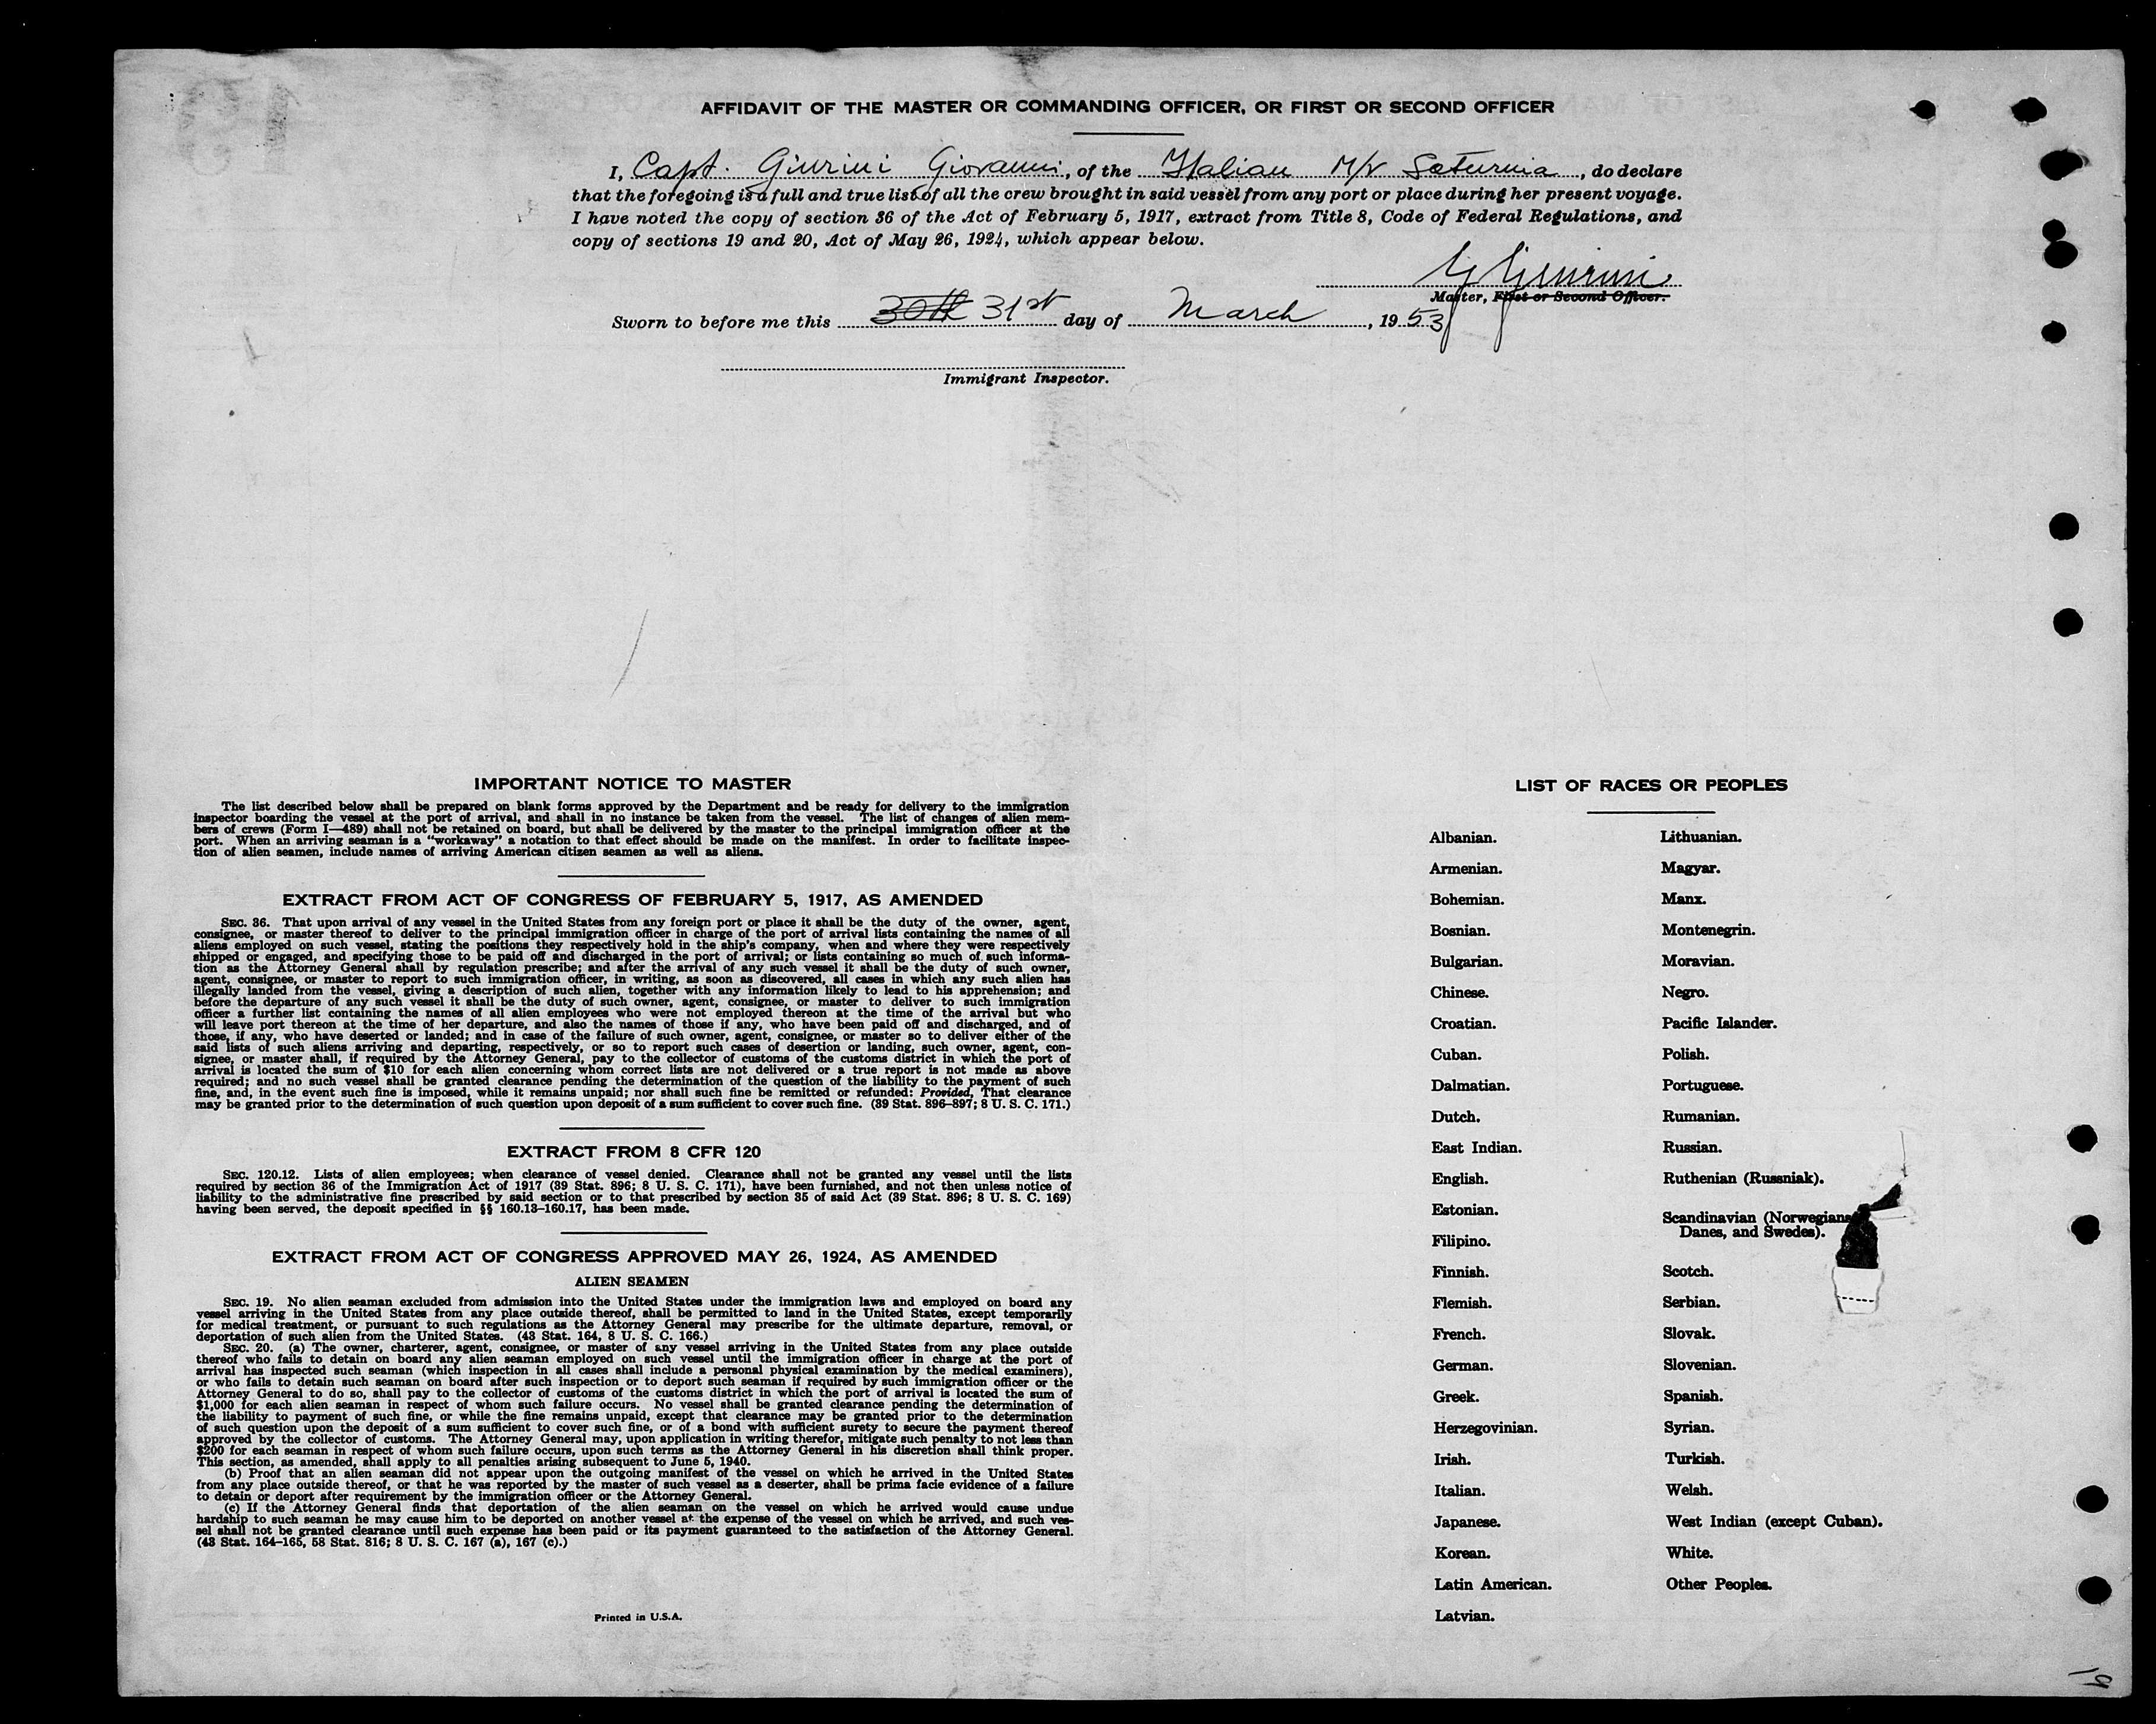 AFFIDAVIT OF THE MASTER OR COMMANDING OFFICER, OR FIRST OR SECOND OFFICER
I, Capt. Giurini Giovanni, of the Italian M/V Saturnia, do declare
that the foregoing is a full and true list of all the crew brought in said vessel from any port or place during her present voyage.
I have noted the copy of section 36 of the Act of February 5, 1917, extract from Title 8, Code of Federal Regulations, and
copy of sections 19 and 20, Act of May 26, 1924, which appear below.
G Giurini
Master, First or Second Officer.
Sworn to before me this 30th 31st day of March, 1953
Immigrant Inspector.
IMPORTANT NOTICE TO MASTER
The list described below shall be prepared on blank forms approved by the Department and be ready for delivery to the immigration
inspector boarding the vessel at the port of arrival, and shall in no instance be taken from the vessel. The list of changes of alien mem-
bers of crews (Form I—489) shall not be retained on board, but shall be delivered by the master to the principal immigration officer at the
port. When an arriving seaman is a "workaway" a notation to that effect should be made on the manifest. In order to facilitate inspec-
tion of alien seamen, include names of arriving American citizen seamen as well as aliens.
EXTRACT FROM ACT OF CONGRESS OF FEBRUARY 5, 1917, AS AMENDED
SEC. 36. That upon arrival of any vessel in the United States from any foreign port or place it shall be the duty of the owner, agent,
consignee, or master thereof to deliver to the principal immigration officer in charge of the port of arrival lists containing the names of all
aliens employed on such vessel, stating the positions they respectively hold in the ship's company, when and where they were respectively
shipped or engaged, and specifying those to be paid off and discharged in the port of arrival; or lists containing so much of such informa-
tion as the Attorney General shall by regulation prescribe; and after the arrival of any such vessel it shall be the duty of such owner,
agent, consignee, or master to report to such immigration officer, in writing, as soon as discovered, all cases in which any such alien has
illegally landed from the vessel, giving a description of such alien, together with any information likely to lead to his apprehension; and
before the departure of any such vessel it shall be the duty of such owner, agent, consignee, or master to deliver to such immigration
officer a further list containing the names of all alien employees who were not employed thereon at the time of the arrival but who
will leave port thereon at the time of her departure, and also the names of those if any, who have been paid off and discharged, and of
those, if any, who have deserted or landed; and in case of the failure of such owner, agent, consignee, or master so to deliver either of the
said lists of such aliens arriving and departing, respectively, or so to report such cases of desertion or landing, such owner, agent, con-
signee, or master shall, if required by the Attorney General, pay to the collector of customs of the customs district in which the port of
arrival is located the sum of $10 for each alien concerning whom correct lists are not delivered or a true report is not made as above
required; and no such vessel shall be granted clearance pending the determination of the question of the liability to the payment of such
fine, and, in the event such fine is imposed, while it remains unpaid; nor shall such fine be remitted or refunded: Provided, That clearance
may be granted prior to the determination of such question upon deposit of a sum sufficient to cover such fine. (39 Stat. 896–897; 8 U. S. C. 171.)
EXTRACT FROM 8 CFR 120
SEC. 120.12. Lists of alien employees; when clearance of vessel denied. Clearance shall not be granted any vessel until the lists
required by section 36 of the Immigration Act of 1917 (39 Stat. 896; 8 U. S. C. 171), have been furnished, and not then unless notice of
liability to the administrative fine prescribed by said section or to that prescribed by section 35 of said Act (39 Stat. 896; 8 U. S. C. 169)
having been served, the deposit specified in §§ 160.13–160.17, has been made.
EXTRACT FROM ACT OF CONGRESS APPROVED MAY 26, 1924, AS AMENDED
ALIEN SEAMEN
SEC. 19. No alien seaman excluded from admission into the United States under the immigration laws and employed on board any
vessel arriving in the United States from any place outside thereof, shall be permitted to land in the United States, except temporarily
for medical treatment, or pursuant to such regulations as the Attorney General may prescribe for the ultimate departure, removal, or
deportation of such alien from the United States. (43 Stat. 164, 8 U. S. C. 166.)
SEC. 20. (a) The owner, charterer, agent, consignee, or master of any vessel arriving in the United States from any place outside
thereof who fails to detain on board any alien seaman employed on such vessel until the immigration officer in charge at the port of
arrival has inspected such seaman (which inspection in all cases shall include a personal physical examination by the medical examiners),
or who fails to detain such seaman on board after such inspection or to deport such seaman if required by such immigration officer or the
Attorney General to do so, shall pay to the collector of customs of the customs district in which the port of arrival is located the sum of
$1,000 for each alien seaman in respect of whom such failure occurs. No vessel shall be granted clearance pending the determination of
the liability to payment of such fine, or while the fine remains unpaid, except that clearance may be granted prior to the determination
of such question upon the deposit of a sum sufficient to cover such fine, or of a bond with sufficient surety to secure the payment thereof
approved by the collector of customs. The Attorney General may, upon application in writing therefor, mitigate such penalty to not less than
$200 for each seaman in respect of whom such failure occurs, upon such terms as the Attorney General in his discretion shall think proper.
This section, as amended, shall apply to all penalties arising subsequent to June 5, 1940.
(b) Proof that an alien seaman did not appear upon the outgoing manifest of the vessel on which he arrived in the United States
from any place outside thereof, or that he was reported by the master of such vessel as a deserter, shall be prima facie evidence of a failure
to detain or deport after requirement by the immigration officer or the Attorney General.
(c) If the Attorney General finds that deportation of the alien seaman on the vessel on which he arrived would cause undue
hardship to such seaman he may cause him to be deported on another vessel at the expense of the vessel on which he arrived, and such ves-
sel shall not be granted clearance until such expense has been paid or its payment guaranteed to the satisfaction of the Attorney General.
(43 Stat. 164–165, 58 Stat. 816; 8 U. S. C. 167 (a), 167 (c).)
Printed in U.S.A.
LIST OF RACES OR PEOPLES
Albanian.
Armenian.
Bohemian.
Bosnian.
Bulgarian.
Chinese.
Croatian.
Cuban.
Dalmatian.
Dutch.
East Indian.
English.
Estonian.
Filipino.
Finnish.
Flemish.
French.
German.
Greek.
Herzegovinian.
Irish.
Italian.
Japanese.
Korean.
Latin American.
Latvian.
Lithuanian.
Magyar.
Manx.
Montenegrin.
Moravian.
Negro.
Pacific Islander.
Polish.
Portuguese.
Rumanian.
Russian.
Ruthenian (Russniak).
Scandinavian (Norwegians
Danes, and Swedes).
Scotch.
Serbian.
Slovak.
Slovenian.
Spanish.
Syrian.
Turkish.
Welsh.
West Indian (except Cuban).
White.
Other Peoples.